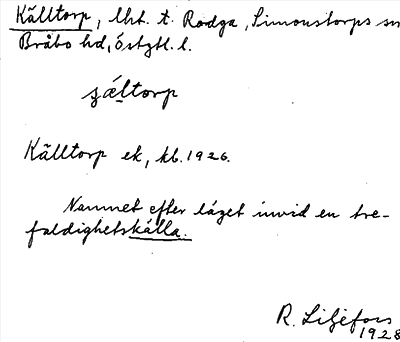 Källtorp, lht. t. Rodga, Simonstorps sn
Bråbo hd, Östgtl. l.
Källtorp ek, kb. 1926.
Namnet efter läget invid en tre-
faldighetskälla.
R. Liljefors
1928